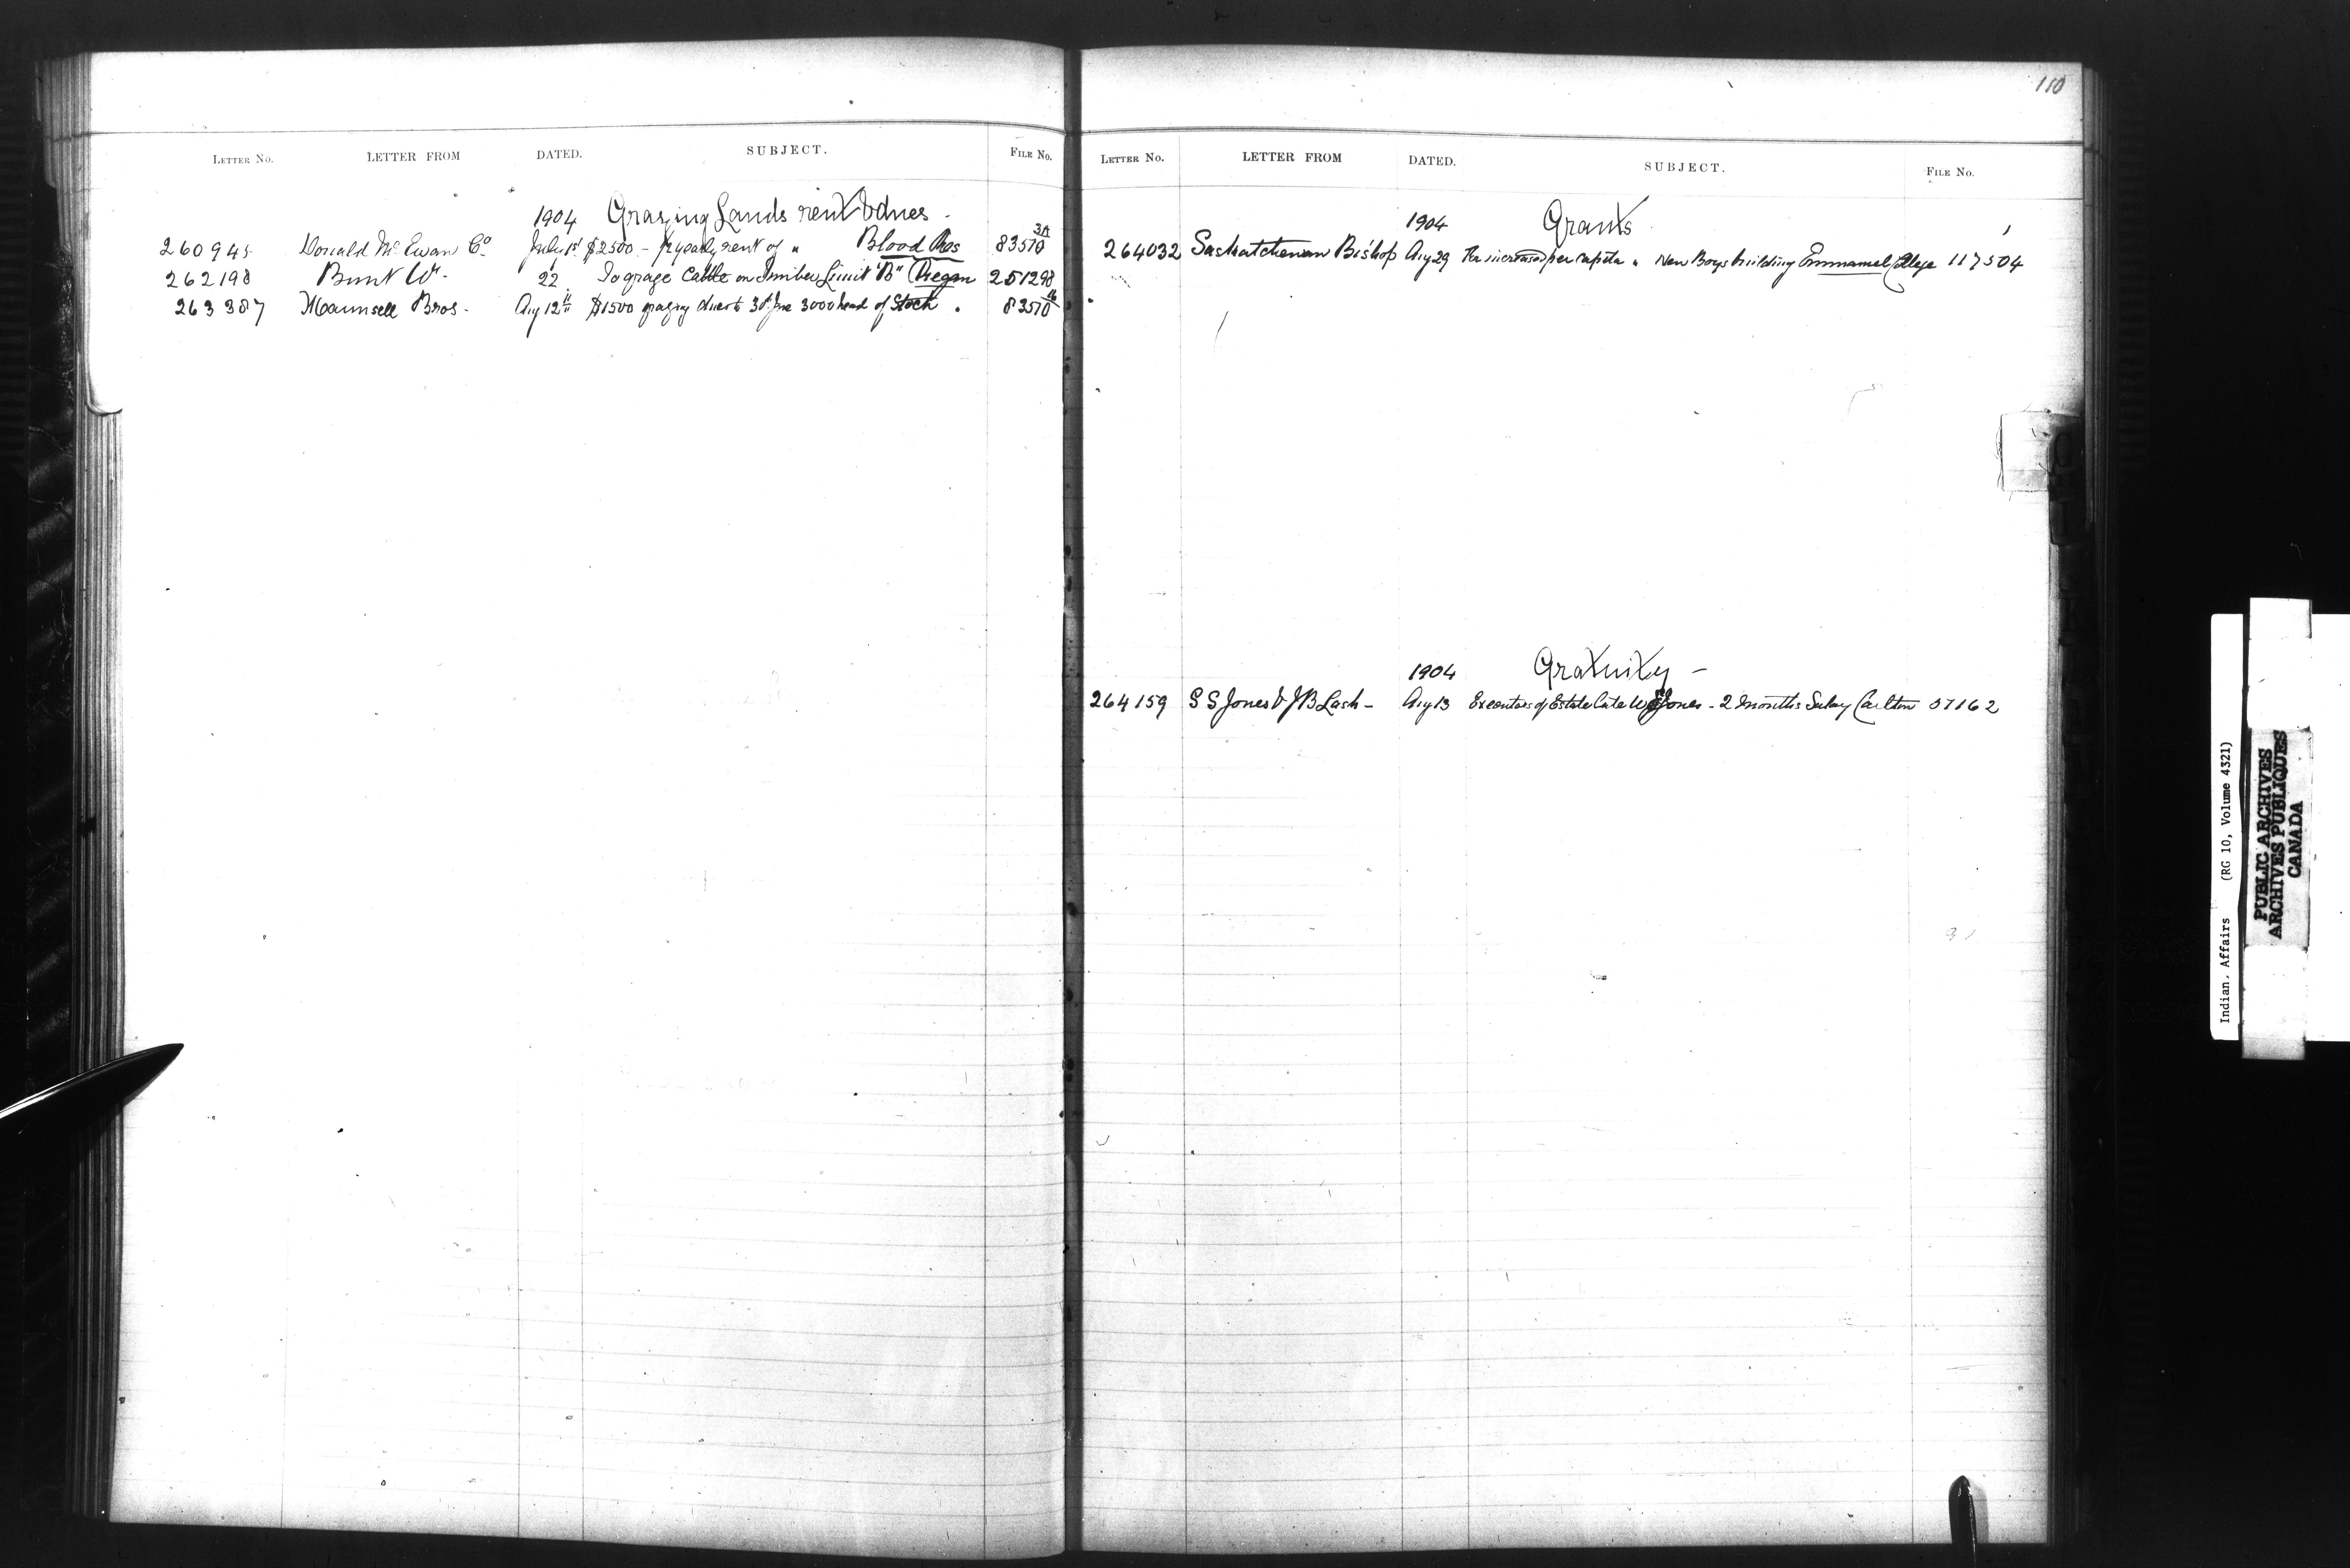 110
LETTER NO. LETTER FROM DATED. SUBJECT. FILE NO.
1904 Grazing Lands rent & dues -
260945 Donald McEwan Co July 1st $2500 - ½ yearly rent of " Blood Res 83570 3A
262198 Bunt Wm - 22 To graze Cattle on Timber Limit "B" Piegan 251298
263387 Maunsell Bros - Aug 12th $1500 grazing dues to 30 June 3000 head of Stock " 83570 16
LETTER NO. LETTER FROM DATED. SUBJECT. FILE NO.
1904 Grants
264032 Saskatchewan Bishop Aug 29 For increased per capita " New Boys building Emmanuel College 117504
1904 Gratuity -
264159 S S Jones & J B Lash - Aug 13 Executors of Estate late Jones - 2 months Salary Carlton 57162
Indian Affairs (RG 10, Volume 4321)
PUBLIC ARCHIVES
ARCHIVES PUBLIQUES
CANADA